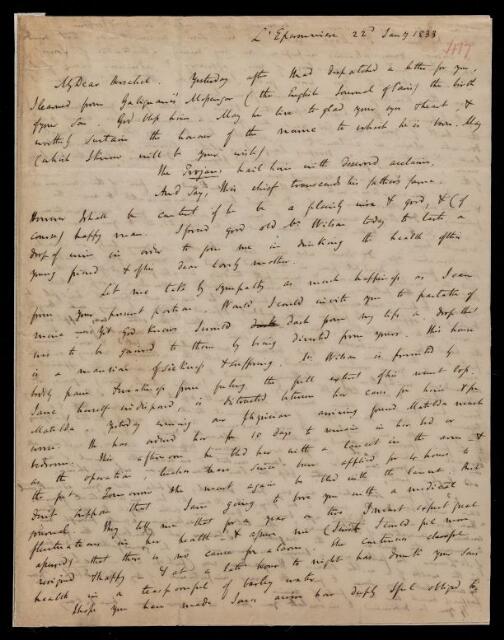 L'Eperonniere 22d Jany 1833
My Dear Herschel. Yesterday after I had dispatched a letter for you,
I learned from Galignani's Messenger (the English Journal of Paris) the birth
of your Son. God bless him. May he live to glad your eyes & heart, &
worthily sustain the honour of the name to which he is born. May
(which I know will be your wish)
The Trojans hail him with deserved acclaim,
And say, this chief transcends his father's fame.
However I shall be content if he be a plainly wise & good, & (of
course) happy man. I forced good old Mr Wilson today to taste a
drop of wine in order to join me in drinking the health of the
young friend & of his dear lovely mother.
Let me take by sympathy as much happiness as I can
from your present portion. Would I could invite you to partake of
mine — yet God knows I would dash from my lips a drop that
was to be gained to them by being diverted from yours. This house
is a mansion of sickness & suffering. Mr Wilson is prevented by
bodily pain & weakness from feeling the full extent of his recent loss.
Jane, herself indisposed, is distracted between her cares for him & for
Matilda. Yesterday evening our physician arriving found Matilda much
worse. He has ordered her for 10 days to remain in her bed or
bedroom. This afternoon he bled her with a lancet in the arm &
the operation, leeches have since been applied for 4 hours to
the feet. Tomorrow she must again be bled with the lancet. But
don't suppose that I am going to bore you with a medical
journal. They tell me that for a year or two I must expect great
fluctuations in her health & assure me (I wish I could feel more
assured) that there is no cause for alarm. She continues cheerful
resigned & happy & at a late hour to night has drunk your son's
health in a teaspoonful of barley water.
I hope you have made Jane aware how deeply I feel obliged to